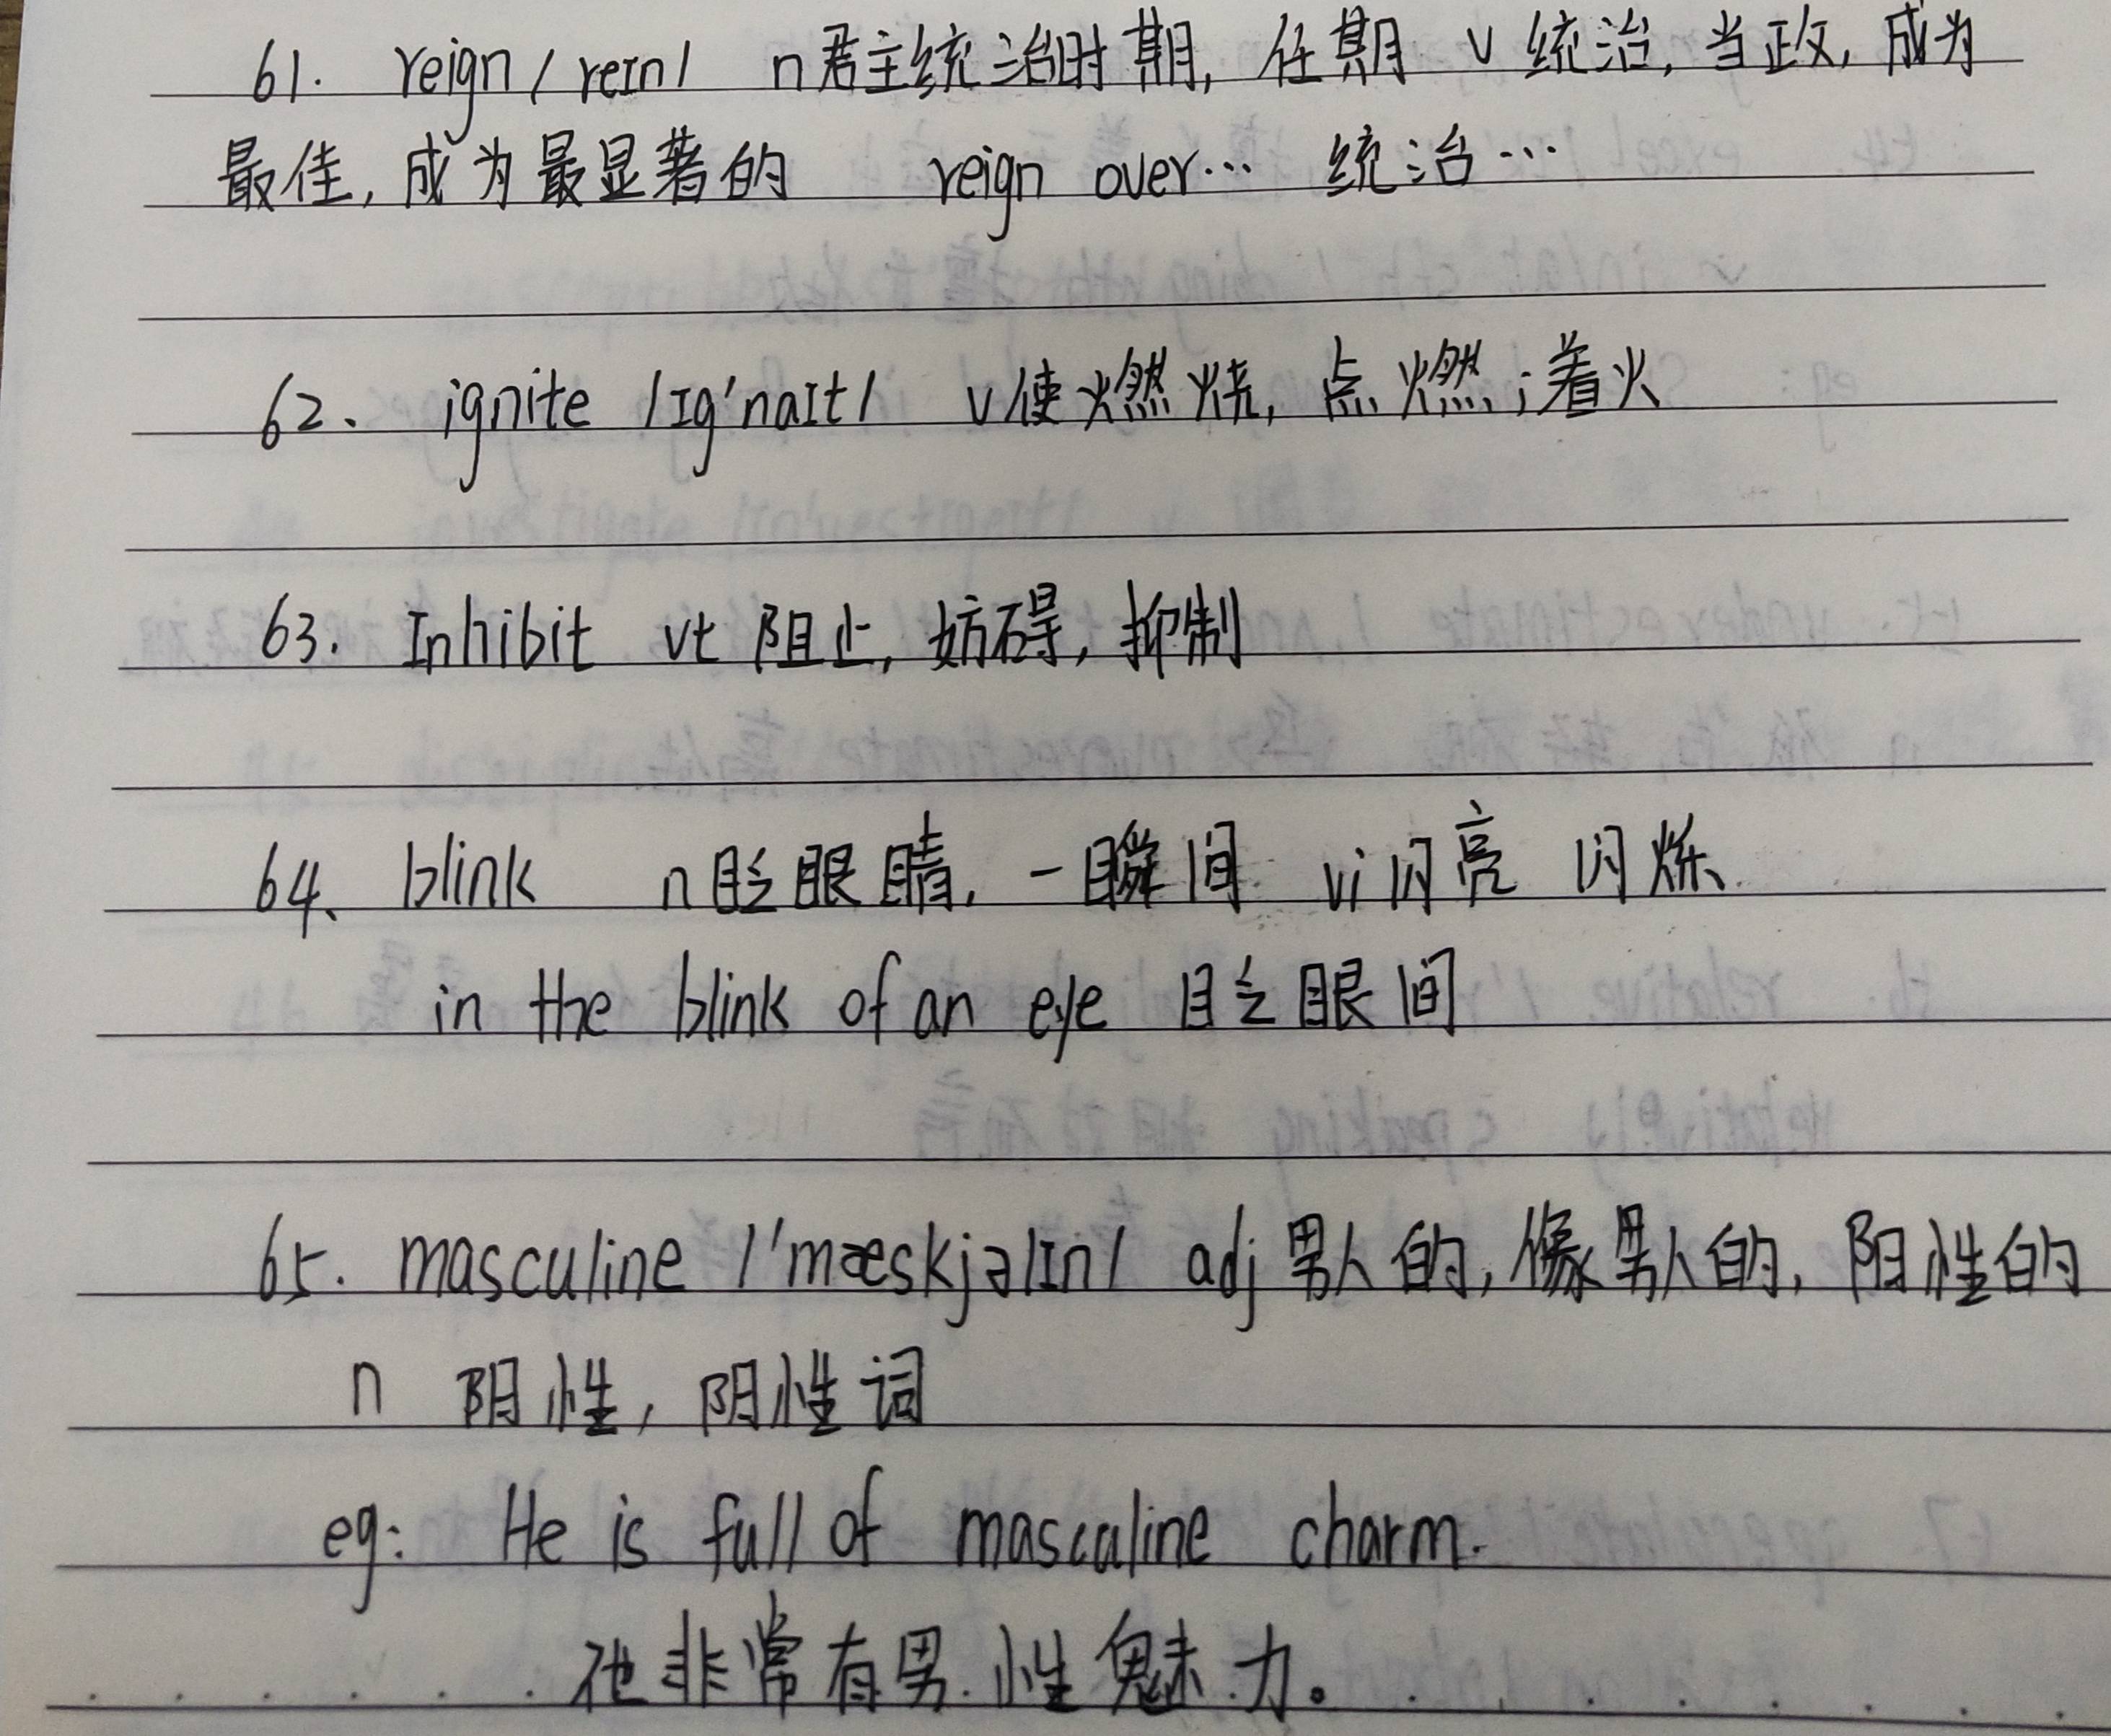 61. reign /reIn/ n君主统治时期, 任期 v 统治, 当政, 成为
最佳, 成为最显著的 reign over… 统治…
62、 ignite /Ig'naIt/ v使燃烧, 点燃;着火
63. Inhibit vt 阻止, 妨碍, 抑制
64、 blink n眨眼睛, 一瞬间 vi闪亮 闪烁
in the blink of an eye 眨眼间
65. masculine /'mæskjəlIn/ adj 男人的, 像男人的, 阳性的
n 阴性, 阴性词
eg: He is full of masculine charm.
他非常有男性魅力。